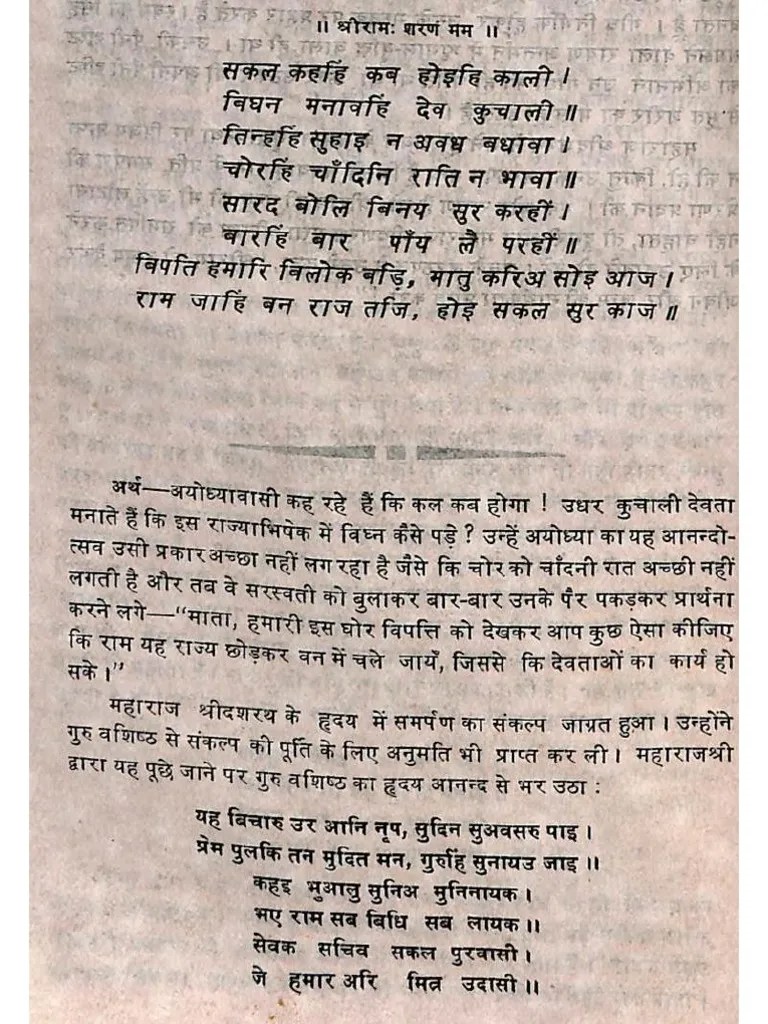 ॥ श्रीरामः शरणं मम ॥
सकल कहहिं कब होइहि काली ।
बिघन मनावहिं देव कुचाली ॥
तिन्हहिं सुहाइ न अवध बधावा ।
चोरहिं चाँदिनि राति न भावा ॥
सारद बोलि बिनय सुर करहीं ।
बारहिं बार पाँय लै परहीं ॥
बिपति हमारि विलोक बड़ि, मातु करिअ सोइ आज ।
राम जाहिं बन राज तजि, होइ सकल सुर काज ॥
अर्थ—अयोध्यावासी कह रहे हैं कि कल कब होगा ! उधर कुचाली देवता
मनाते हैं कि इस राज्याभिषेक में विघ्न कैसे पड़े ? उन्हें अयोध्या का यह आनन्दो-
त्सव उसी प्रकार अच्छा नहीं लग रहा है जैसे कि चोर को चाँदनी रात अच्छी नहीं
लगती है और तब वे सरस्वती को बुलाकर बार-बार उनके पैर पकड़कर प्रार्थना
करने लगे—"माता, हमारी इस घोर विपत्ति को देखकर आप कुछ ऐसा कीजिए
कि राम यह राज्य छोड़कर वन में चले जायँ, जिससे कि देवताओं का कार्य हो
सके ।"
महाराज श्रीदशरथ के हृदय में समर्पण का संकल्प जाग्रत हुआ । उन्होंने
गुरु वशिष्ठ से संकल्प की पूर्ति के लिए अनुमति भी प्राप्त कर ली । महाराजश्री
द्वारा यह पूछे जाने पर गुरु वशिष्ठ का हृदय आनन्द से भर उठा :
यह बिचारु उर आनि नृप, सुदिन सुअवसरु पाइ ।
प्रेम पुलकि तन मुदित मन, गुरुहिं सुनायउ जाइ ॥
कहइ भुआलु सुनिअ मुनिनायक ।
भए राम सब बिधि सब लायक ॥
सेवक सचिव सकल पुरवासी ।
जे हमार अरि मित्र उदासी ॥